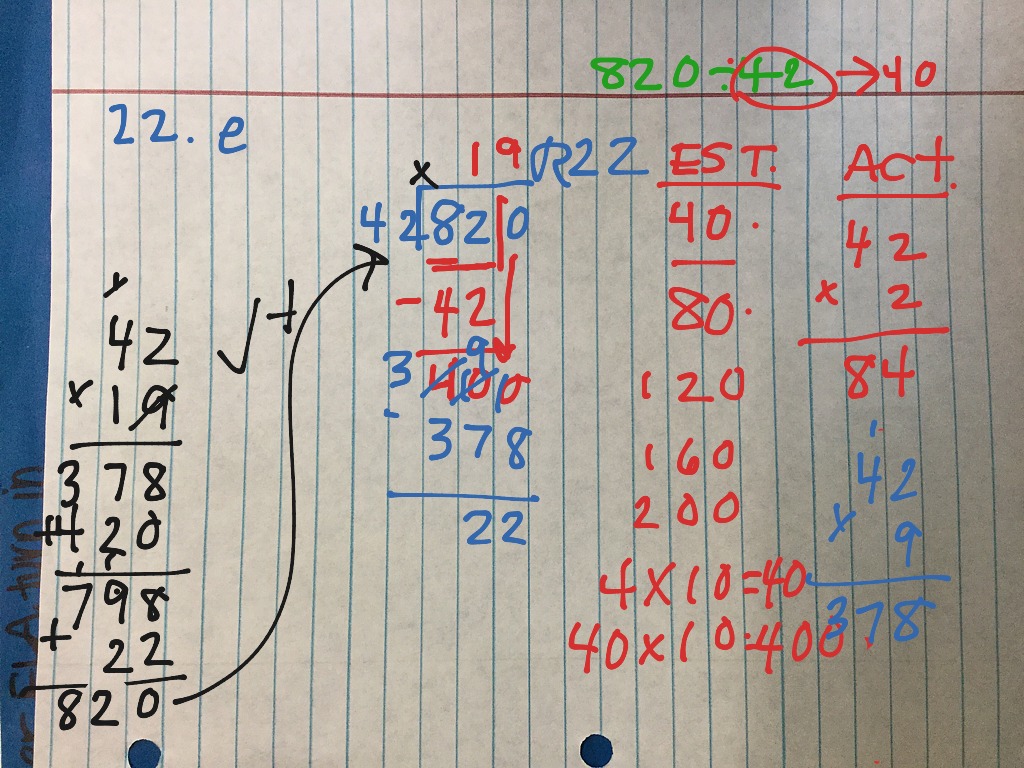 820 ÷ 42 → 40
22. e
19 R22
42 820
- 42
400
3 9 1
- 378
22
EST.
40
80
120
160
200
4 x 10 = 40
40 x 10 = 400
Act.
42
x 2
84
1
42
x 9
378
42
x 19
378
+ 420
798
+ 22
820
✓+